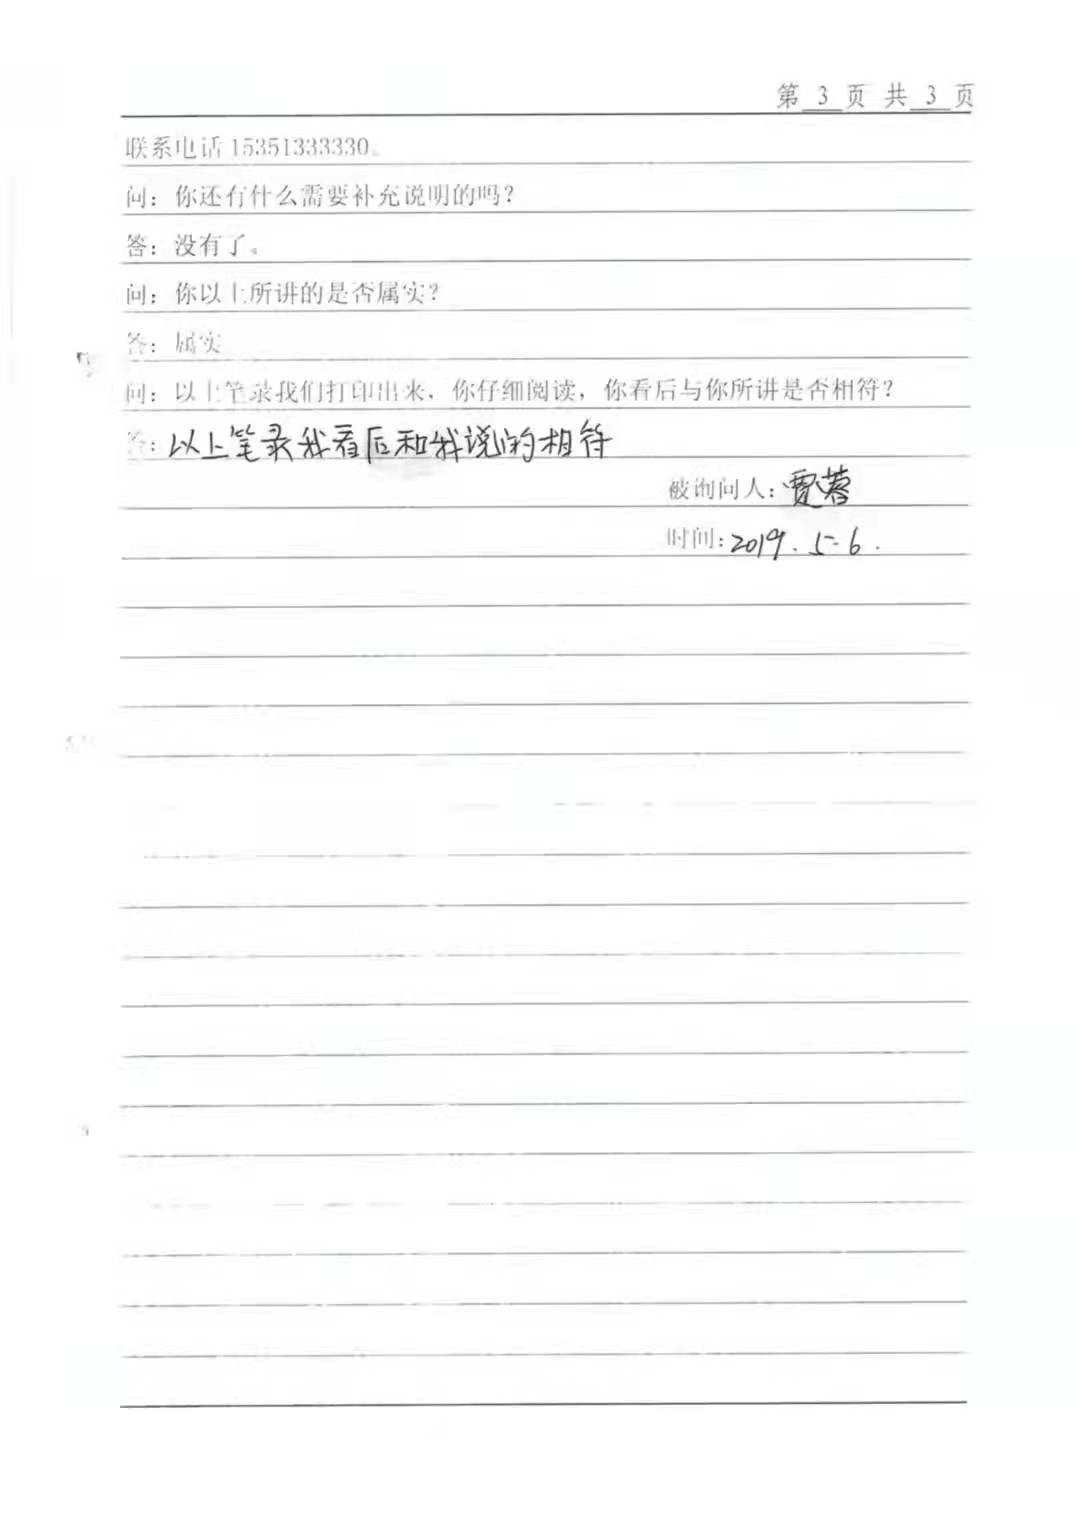 第 3 页 共 3 页
联系电话 15351333330。
问：你还有什么需要补充说明的吗？
答：没有了。
问：你以上所讲的是否属实？
答：属实
问：以上笔录我们打印出来，你仔细阅读，你看后与你所讲是否相符？
答：以上笔录我看后和我说的相符
被询问人：贾蓉
时间：2019.5-6.